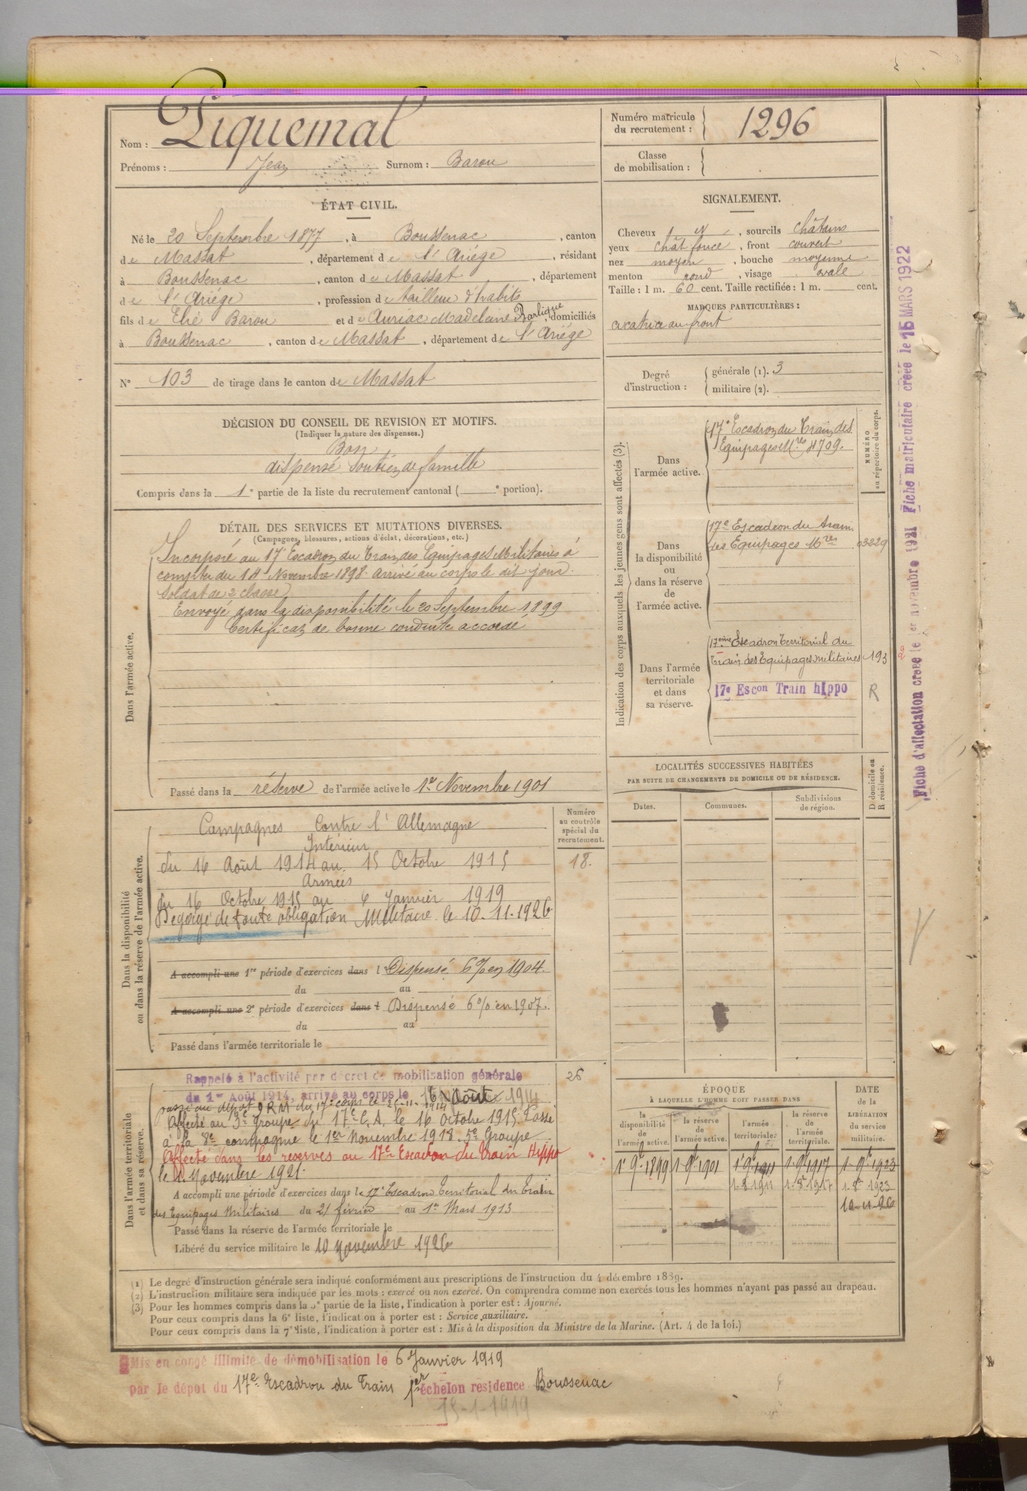 Nom : Piquemal
Prénoms : Jean Surnom : Barou
Numéro matricule du recrutement : 1296
Classe de mobilisation :
ÉTAT CIVIL.
Né le 20 Septembre 1877, à Boussenac, canton
de Massat, département de l'Ariège, résidant
à Boussenac, canton de Massat, département
de l'Ariège, profession de tailleur d'habits
fils de Elié Barou et de Auriac Madelaine, domiciliés
à Boussenac, canton de Massat, département de l'Ariége
N° 103 de tirage dans le canton de Massat
SIGNALEMENT.
Cheveux N, sourcils châtains
yeux chât foncé, front couvert
nez moyen, bouche moyenne
menton rond, visage ovale
Taille : 1 m. 60 cent. Taille rectifiée : 1 m. cent.
MARQUES PARTICULIÈRES :
cicatrice au front
Degré d'instruction : générale (1). 3
militaire (2).
DÉCISION DU CONSEIL DE REVISION ET MOTIFS.
(Indiquer la nature des dispenses.)
Bon
dispensé Soutien de famille
Compris dans la 1e partie de la liste du recrutement cantonal ( e portion).
DÉTAIL DES SERVICES ET MUTATIONS DIVERSES.
(Campagnes, blessures, actions d'éclat, décorations, etc.)
Dans l'armée active.
Incorporé au 17e Escadron du Train des Equipages Militaires à
compter du 14 Novembre 1898. Arrivé au corps le dit jour
Soldat de 2e classe
Envoyé dans la disponibilité le 20 Septembre 1899
Certificat de bonne conduite accordé
Passé dans la réserve de l'armée active le 1er Novembre 1901
Indication des corps auxquels les jeunes gens sont affectés (3).
NUMÉRO au répertoire du corps.
Dans l'armée active.
17e Escadron du Train des
Equipages Mres 4709.
Dans la disponibilité ou dans la réserve de l'armée active.
17e Escadron du train
des Equipages Mres 03329
Dans l'armée territoriale et dans sa réserve.
17ème Escadron Territorial du
Train des Equipages militaires 193
17e Escon Train hippo R
LOCALITÉS SUCCESSIVES HABITÉES
PAR SUITE DE CHANGEMENTS DE DOMICILE OU DE RÉSIDENCE.
Dates. Communes. Subdivisions de région. D domicile ou R résidence.
Dans la disponibilité ou dans la réserve de l'armée active.
Numéro au contrôle spécial du recrutement.
18.
Campagnes Contre l'Allemagne
Intérieur
du 16 Août 1914 au 15 Octobre 1915
Armées
du 16 Octobre 1915 au 6 Janvier 1919
Dégagé de toute obligation Militaire le 10-11-1926
A accompli une 1re période d'exercices dans l Dispensé 6% en 1904
du au
A accompli une 2e période d'exercices dans l Dispensé 6% en 1907.
du au
Passé dans l'armée territoriale le
Dans l'armée territoriale et dans sa réserve.
26
Rappelé à l'activité par décret de mobilisation générale
du 1er Août 1914, arrivé au corps le 16 Août 1914
Affecté au 3e Groupe du 17e C.A. le 16 Octobre 1915 Passé
à la 8e compagne le 1er Novembre 1918. 5e Groupe
Affecté dans les réserves au 17e Escadron du Train Hippo
le 1 Novembre 1921.
A accompli une période d'exercices dans le 17e Escadron Territorial du Train
des Equipages Militaires du 21 février au 1er Mars 1913
Passé dans la réserve de l'armée territoriale le
Libéré du service militaire le 10 Novembre 1926
ÉPOQUE
À LAQUELLE L'HOMME DOIT PASSER DANS
la disponibilité de l'armée active. la réserve de l'armée active. l'armée territoriale. la réserve de l'armée territoriale.
DATE de la LIBÉRATION du service militaire.
1r 9e 1899 1-9e 1901 1 9e 1911 1-9e 1917 1-9e 1923
10-11-26
(1) Le degré d'instruction générale sera indiqué conformément aux prescriptions de l'instruction du 4 décembre 1889.
(2) L'instruction militaire sera indiquée par les mots : exercé ou non exercé. On comprendra comme non exercés tous les hommes n'ayant pas passé au drapeau.
(3) Pour les hommes compris dans la 5e partie de la liste, l'indication à porter est : Ajourné.
Pour ceux compris dans la 6e liste, l'indication à porter est : Service auxiliaire.
Pour ceux compris dans la 7e liste, l'indication à porter est : Mis à la disposition du Ministre de la Marine. (Art. 4 de la loi.)
Mis en congé illimité de démobilisation le 6 Janvier 1919
par le dépot du 17e Escadron du Train 1er échelon residence Boussenac
15-1-1919
Fiche d'affectation créée le 1er novembre 1921 Fiche matriculaire créée le 15 MARS 1922